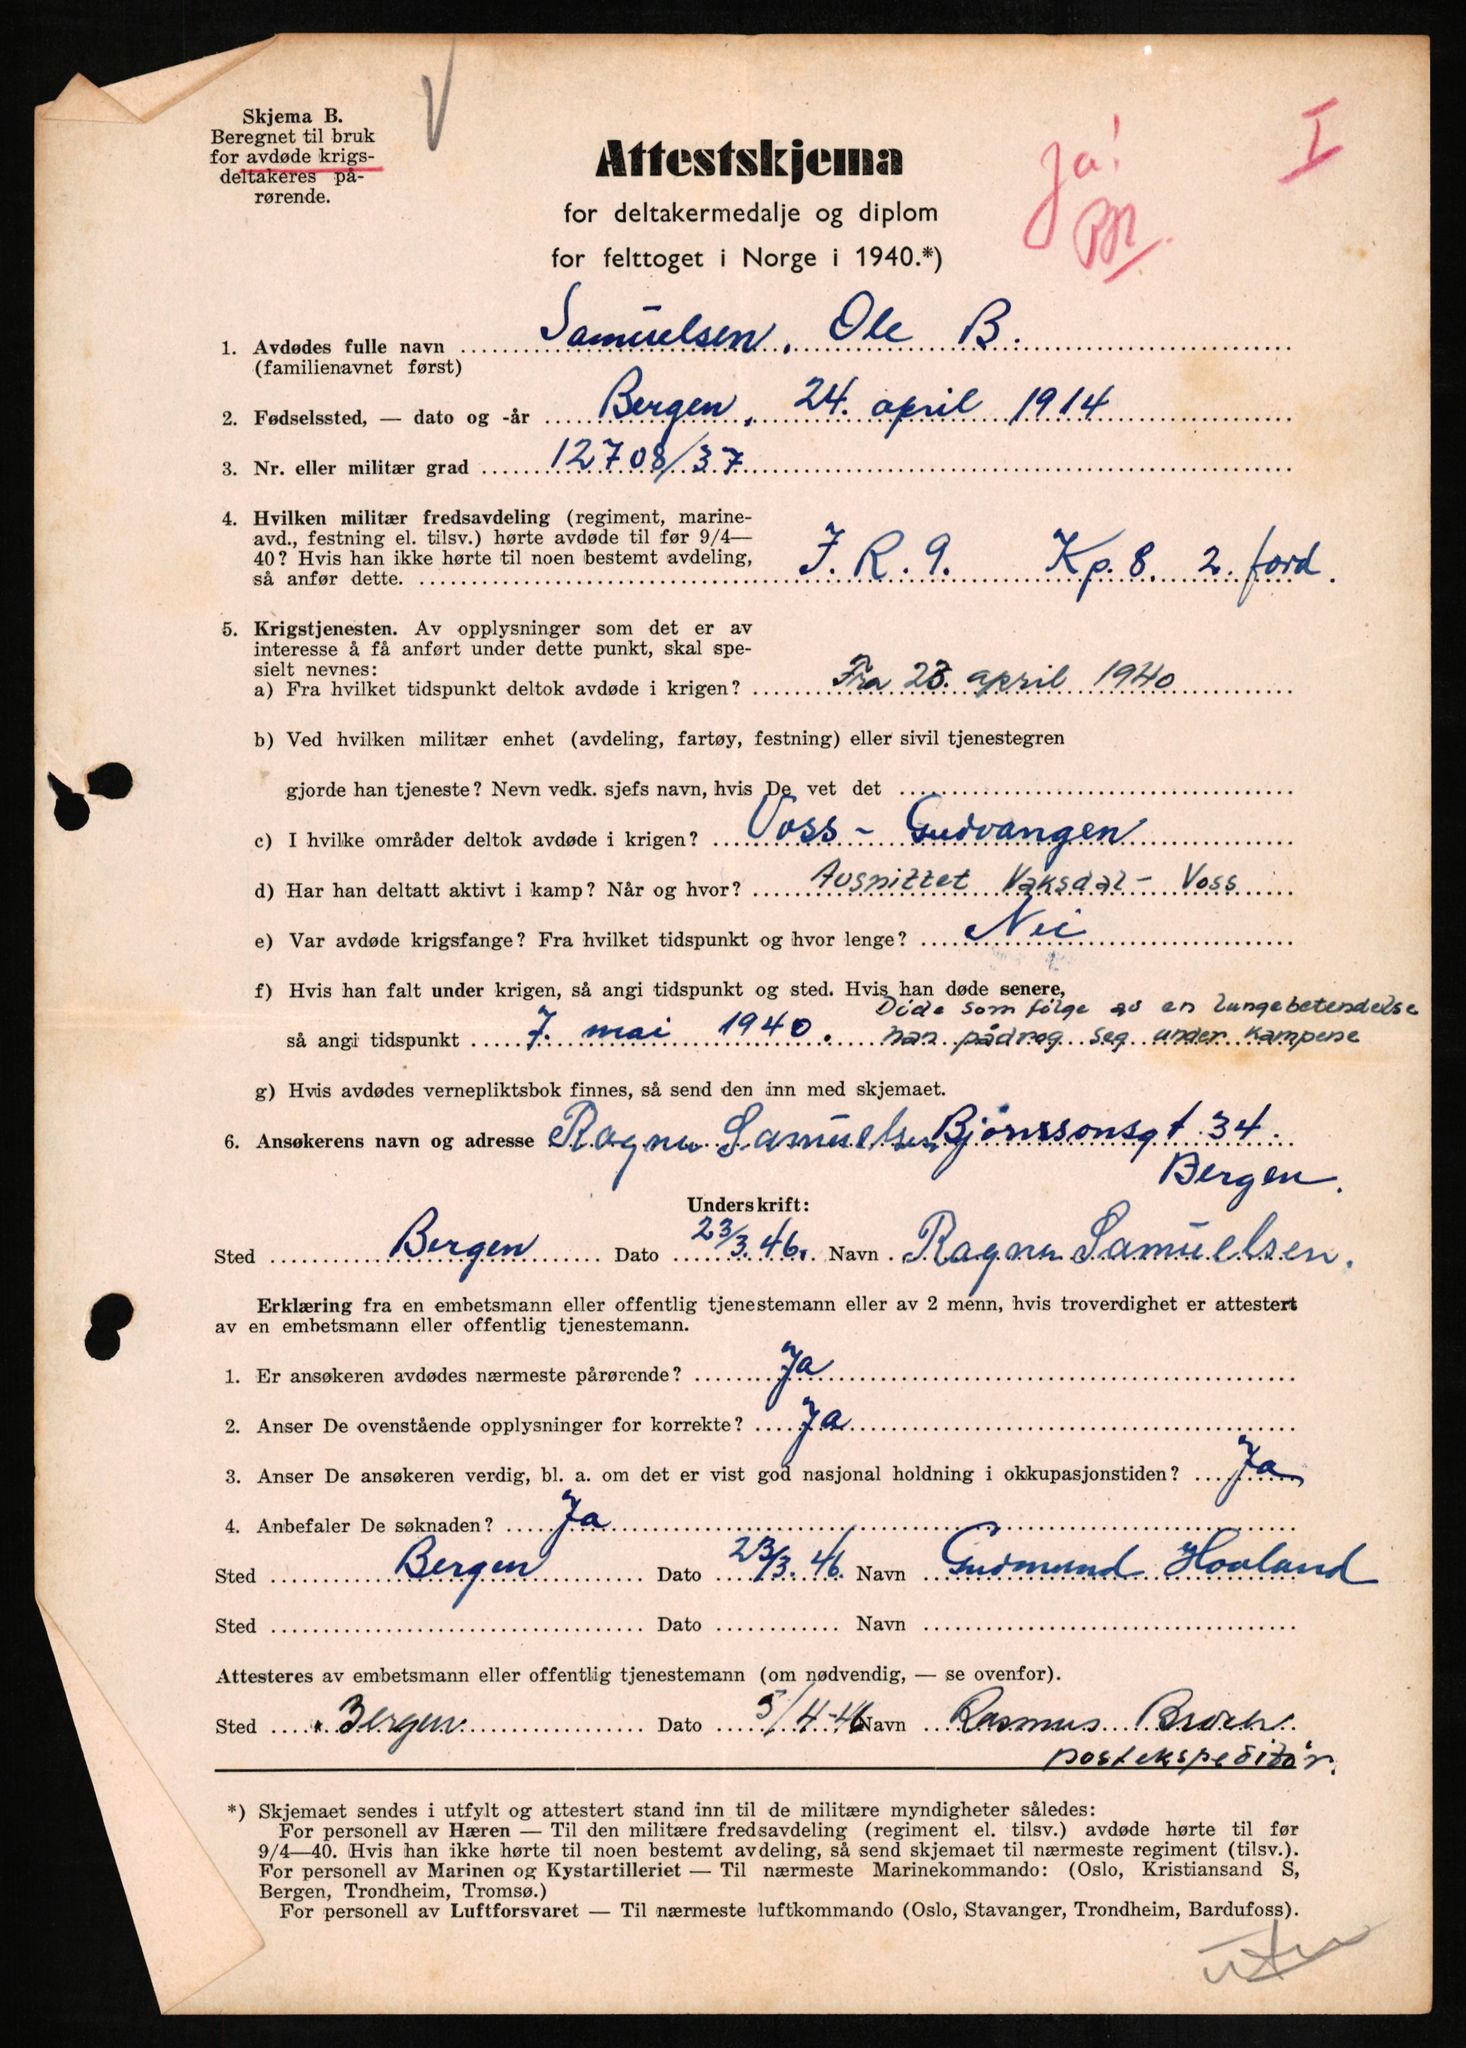 Skjema B.
Beregnet til bruk
for avdøde krigs-
deltakeres på-
rørende.
Attestskjema
for deltakermedalje og diplom
for felttoget i Norge i 1940.*)
Ja!
I
1. Avdødes fulle navn Samuelsen, Ole B.
(familienavnet først)
2. Fødselssted, — dato og -år Bergen, 24. april 1914
3. Nr. eller militær grad 12708/37
4. Hvilken militær fredsavdeling (regiment, marine-
avd., festning el. tilsv.) hørte avdøde til før 9/4—
40? Hvis han ikke hørte til noen bestemt avdeling,
så anfør dette. J. R. 9. Kp. 8. 2. ford.
5. Krigstjenesten. Av opplysninger som det er av
interesse å få anført under dette punkt, skal spe-
sielt nevnes:
a) Fra hvilket tidspunkt deltok avdøde i krigen? Fra 23. april 1940
b) Ved hvilken militær enhet (avdeling, fartøy, festning) eller sivil tjenestegren
gjorde han tjeneste? Nevn vedk. sjefs navn, hvis De vet det
c) I hvilke områder deltok avdøde i krigen? Voss – Gudvangen
d) Har han deltatt aktivt i kamp? Når og hvor? Avsnittet Vaksdal – Voss
e) Var avdøde krigsfange? Fra hvilket tidspunkt og hvor lenge? Nei
f) Hvis han falt under krigen, så angi tidspunkt og sted. Hvis han døde senere,
Døde som følge av en lungebetendelse
så angi tidspunkt 7. mai 1940. han pådrog seg under kampene
g) Hvis avdødes vernepliktsbok finnes, så send den inn med skjemaet.
6. Ansøkerens navn og adresse Ragna Samuelsen Bjørnssonsgt 34.
Bergen.
Underskrift:
Sted Bergen Dato 23/3. 46. Navn Ragna Samuelsen.
Erklæring fra en embetsmann eller offentlig tjenestemann eller av 2 menn, hvis troverdighet er attestert
av en embetsmann eller offentlig tjenestemann.
1. Er ansøkeren avdødes nærmeste pårørende? Ja
2. Anser De ovenstående opplysninger for korrekte? Ja
3. Anser De ansøkeren verdig, bl. a. om det er vist god nasjonal holdning i okkupasjonstiden? Ja
4. Anbefaler De søknaden? Ja
Sted Bergen Dato 23/3. 46. Navn Gudmund Hovland
Sted Dato Navn
Attesteres av embetsmann eller offentlig tjenestemann (om nødvendig, — se ovenfor).
Sted Bergen Dato 5/4-46 Navn Rasmus
postekspeditør.
*) Skjemaet sendes i utfylt og attestert stand inn til de militære myndigheter således:
For personell av Hæren — Til den militære fredsavdeling (regiment el. tilsv.) avdøde hørte til før
9/4—40. Hvis han ikke hørte til noen bestemt avdeling, så send skjemaet til nærmeste regiment (tilsv.).
For personell av Marinen og Kystartilleriet — Til nærmeste Marinekommando: (Oslo, Kristiansand S,
Bergen, Trondheim, Tromsø.)
For personell av Luftforsvaret — Til nærmeste luftkommando (Oslo, Stavanger, Trondheim, Bardufoss).